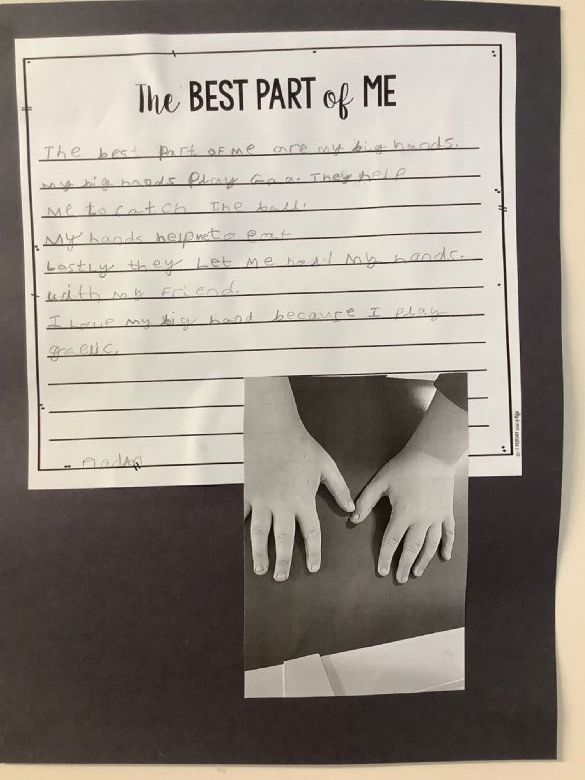 The BEST PART of ME
The best Part oF me are my big hands.
my big hands Play Gaa. They help
me to catch The ball.
My hands help me to eat
Lastly they Let Me hold My hands.
with my Friend.
I Love my big hand because I play
gaelic.